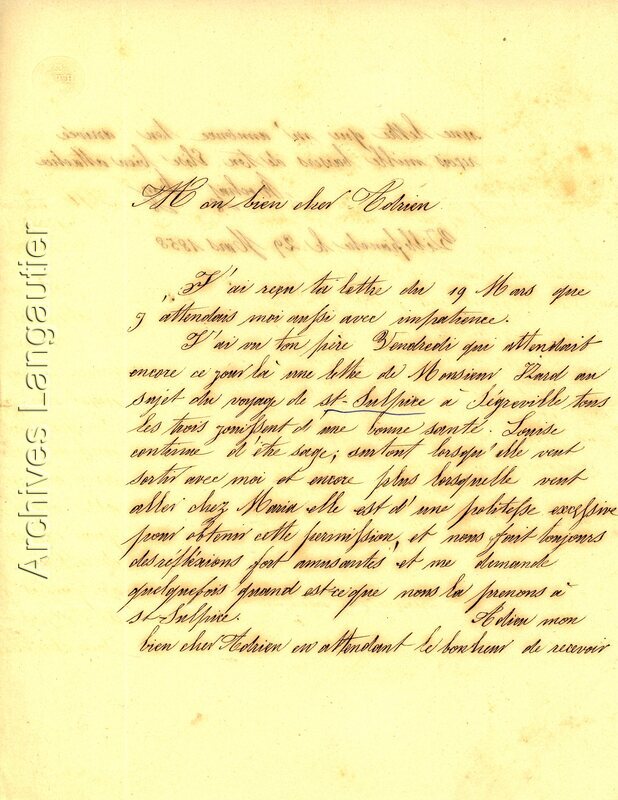 Mon bien cher Adrien
J'ai reçu ta lettre du 19 Mars que
j'attendais moi aussi avec impatience.
J'ai vu ton père Vendredi qui attendait
encore ce jour là une lettre de Monsieur Izard au
sujet du voyage de St-Sulpice à Ségreville tous
les trois jouissent d'une bonne santé. Louise
continue d'être sage; surtout lorsqu'elle veut
sortir avec moi et encore plus lorsquelle veut
aller chez Maria elle est d'une politesse excessive
pour obtenir cette permission, et nous fait toujours
des réfléxions fort amusantes et me demande
quelquefois quand est-ce que nous la prenons à
st-Sulpice. Adieu mon
bien cher Adrien en attendant le bonheur de recevoir
Archives Langautier